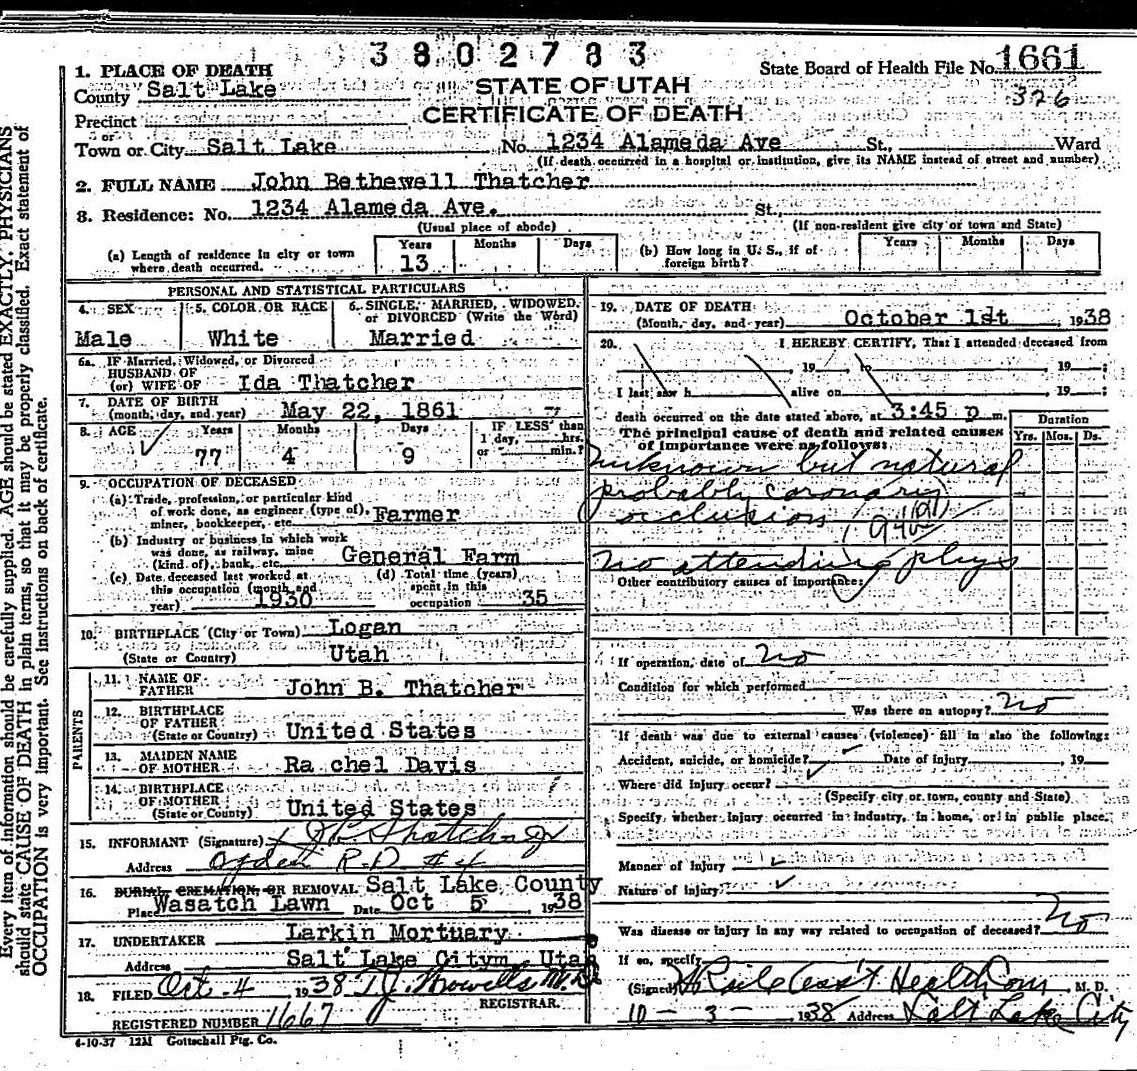 3802783
1. PLACE OF DEATH
State Board of Health File No. 1661
County Salt Lake
STATE OF UTAH
326
Precinct
CERTIFICATE OF DEATH
or
Town or City Salt Lake No. 1234 Alameda Ave St., Ward
(If death occurred in a hospital or institution, give its NAME instead of street and number)
2. FULL NAME John Bethewell Thatcher
3. Residence: No. 1234 Alameda Ave. St.
(Usual place of abode) (If non-resident give city or town and State)
(a) Length of residence in city or town where death occurred. Years 13 Months Days
(b) How long in U. S., if of foreign birth? Years Months Days
PERSONAL AND STATISTICAL PARTICULARS
4. SEX Male
5. COLOR OR RACE White
6. SINGLE, MARRIED, WIDOWED, or DIVORCED (Write the Word) Married
6a. IF Married, Widowed, or Divorced
HUSBAND OF
(or) WIFE OF Ida Thatcher
7. DATE OF BIRTH
(month, day, and year) May 22, 1861
8. AGE Years 77 Months 4 Days 9 IF LESS than 1 day, hrs. or min.?
9. OCCUPATION OF DECEASED
(a) Trade, profession, or particular kind
of work done, as engineer (type of),
miner, bookkeeper, etc. Farmer
(b) Industry or business in which work
was done, as railway, mine
(kind of), bank, etc. General Farm
(c) Date deceased last worked at
this occupation (month and
year) 1930
(d) Total time (years)
spent in this
occupation 35
10. BIRTHPLACE (City or Town) Logan
(State or Country) Utah
PARENTS
11. NAME OF
FATHER John B. Thatcher
12. BIRTHPLACE
OF FATHER
(State or Country) United States
13. MAIDEN NAME
OF MOTHER Ra chel Davis
14. BIRTHPLACE
OF MOTHER
(State or County) United States
15. INFORMANT (Signature) J B Thatcher Jr
Address Ogden R.D #4
16. BURIAL, CREMATION, OR REMOVAL Salt Lake County
Place Wasatch Lawn Date Oct 5, 1938
17. UNDERTAKER Larkin Mortuary
Address Salt Lake Citym, Utah
18. FILED Oct. 4 1938 M.D.
REGISTRAR.
REGISTERED NUMBER 1667
4-10-37 12M Gottschall Ptg. Co.
19. DATE OF DEATH:
(Month, day, and year) October 1st, 1938
20. I HEREBY CERTIFY, That I attended deceased from
, 19 to , 19 ;
I last saw h alive on , 19 ;
death occurred on the date stated above, at 3:45 p m.
The principal cause of death and related causes
of importance were as follows:
Duration
Yrs. Mos. Ds.
unknown but natural
probably coronary
occlusion
no attending phys
Other contributory causes of importance:
If operation, date of no
Condition for which performed
Was there an autopsy? no
If death was due to external causes (violence) fill in also the following:
Accident, suicide, or homicide? Date of injury, 19
Where did injury occur?
(Specify city or town, county and State)
Specify whether injury occurred in industry, in home, or in public place.
Manner of Injury
Nature of Injury
Was disease or injury in any way related to occupation of deceased? No
If so, specify
(Signed) Ass't Health Com, M. D.
10 - 3 - 1938 Address Salt Lake City
Every item of information should be carefully supplied. AGE should be stated EXACTLY. PHYSICIANS
should state CAUSE OF DEATH in plain terms, so that it may be properly classified. Exact statement of
OCCUPATION is very important. See instructions on back of certificate.